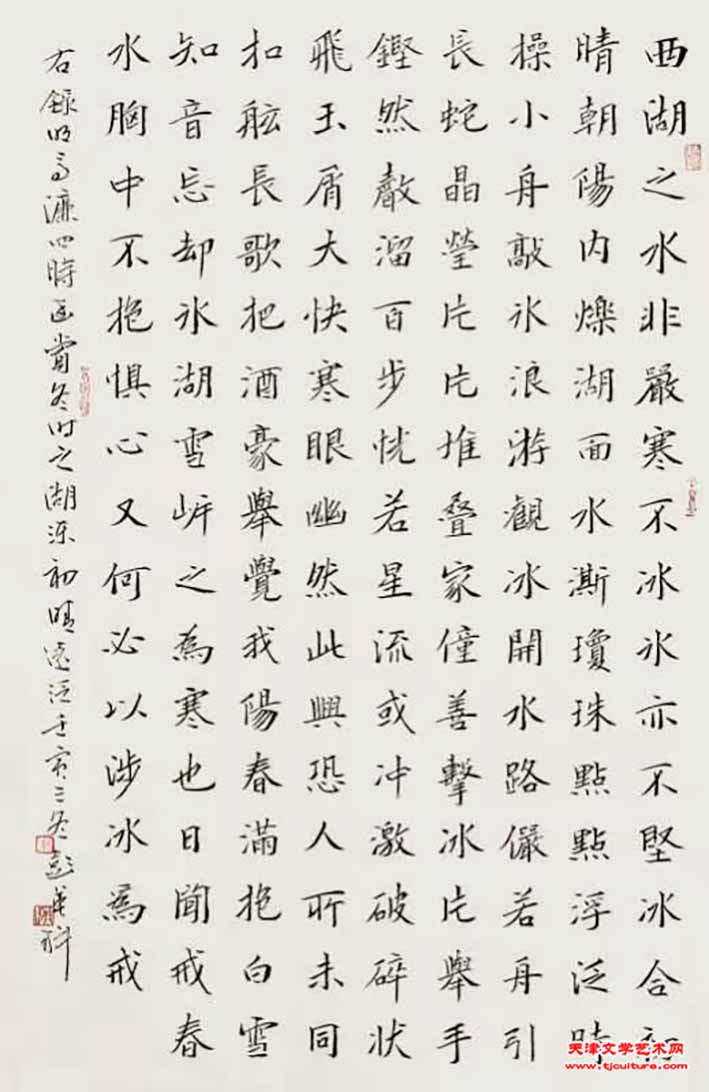 西湖之水非嚴寒不冰氷亦不堅冰合初
晴朝陽内爍湖面水澌瓊珠點點浮泛時
操小舟敲氷浪游觀冰開水路儼若舟引
長蛇晶瑩片片堆疊家僮善擊冰片舉手
鏗然聲溜百步恍若星流或冲激破碎状
飛玉屑大快寒眼幽然此興恐人所未同
扣舷長歌把酒豪舉覺我陽春滿抱白雪
知音忘却氷湖雪岍之為寒也日聞戒春
水胸中不抱惧心又何必以涉冰為戒
右錄明高濂四時幽賞冬時之湖凍初晴遠泛壬寅三冬彭英科
天津文学艺术网
www.tjculture.com